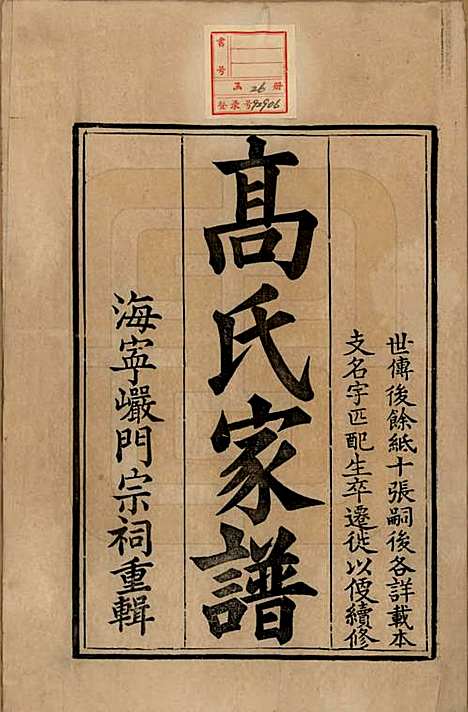 書號
函 26 冊
登录号 92906
世傳後餘紙十張嗣後各詳載本
支名字匹配生卒遷徙以便續修
髙氏家譜
海寧巖門宗祠重輯